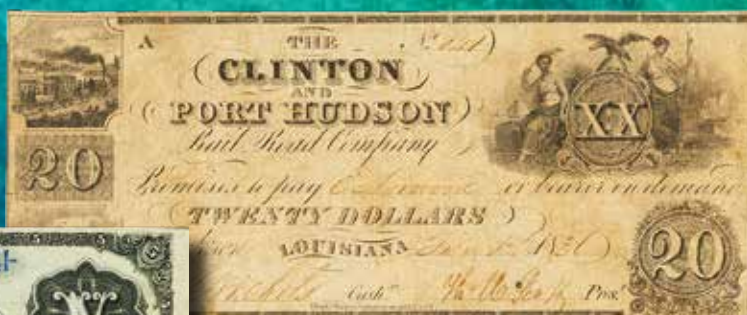 A THE No
CLINTON
AND
PORT HUDSON
Rail Road Company
XX
20
Promises to pay or bearer on demand
TWENTY DOLLARS
LOUISIANA
20
Cash.r Pres.t